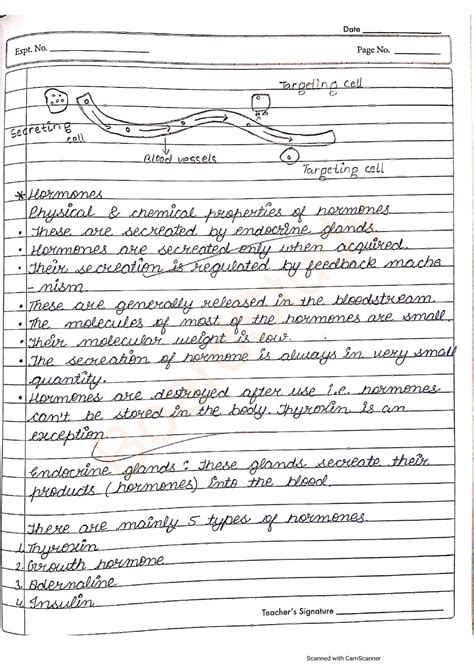 Date
Expt. No.
Page No.
Targeting cell
Secreting
cell
Blood vessels
Targeting cell
* Hormones
Physical & chemical properties of hormones
• These are secreated by endocrine glands.
• Hormones are secreated only when acquired.
• Their secreation is regulated by feedback macha
- nism.
• These are generally released in the bloodstream.
• The molecules of most of the hormones are small.
• Their molecular weight is low.
• The secreation of hormone is always in very small
quantity.
• Hormones are destroyed after use i.e. hormones
can't be stored in the body. Thyroxin is an
exception.
Endocrine glands : These glands secreate their
products (hormones) into the blood.
There are mainly 5 types of hormones.
1. Thyroxin
2. Growth hormone
3. Adernaline
4. Insulin
Teacher's Signature
Scanned with CamScanner